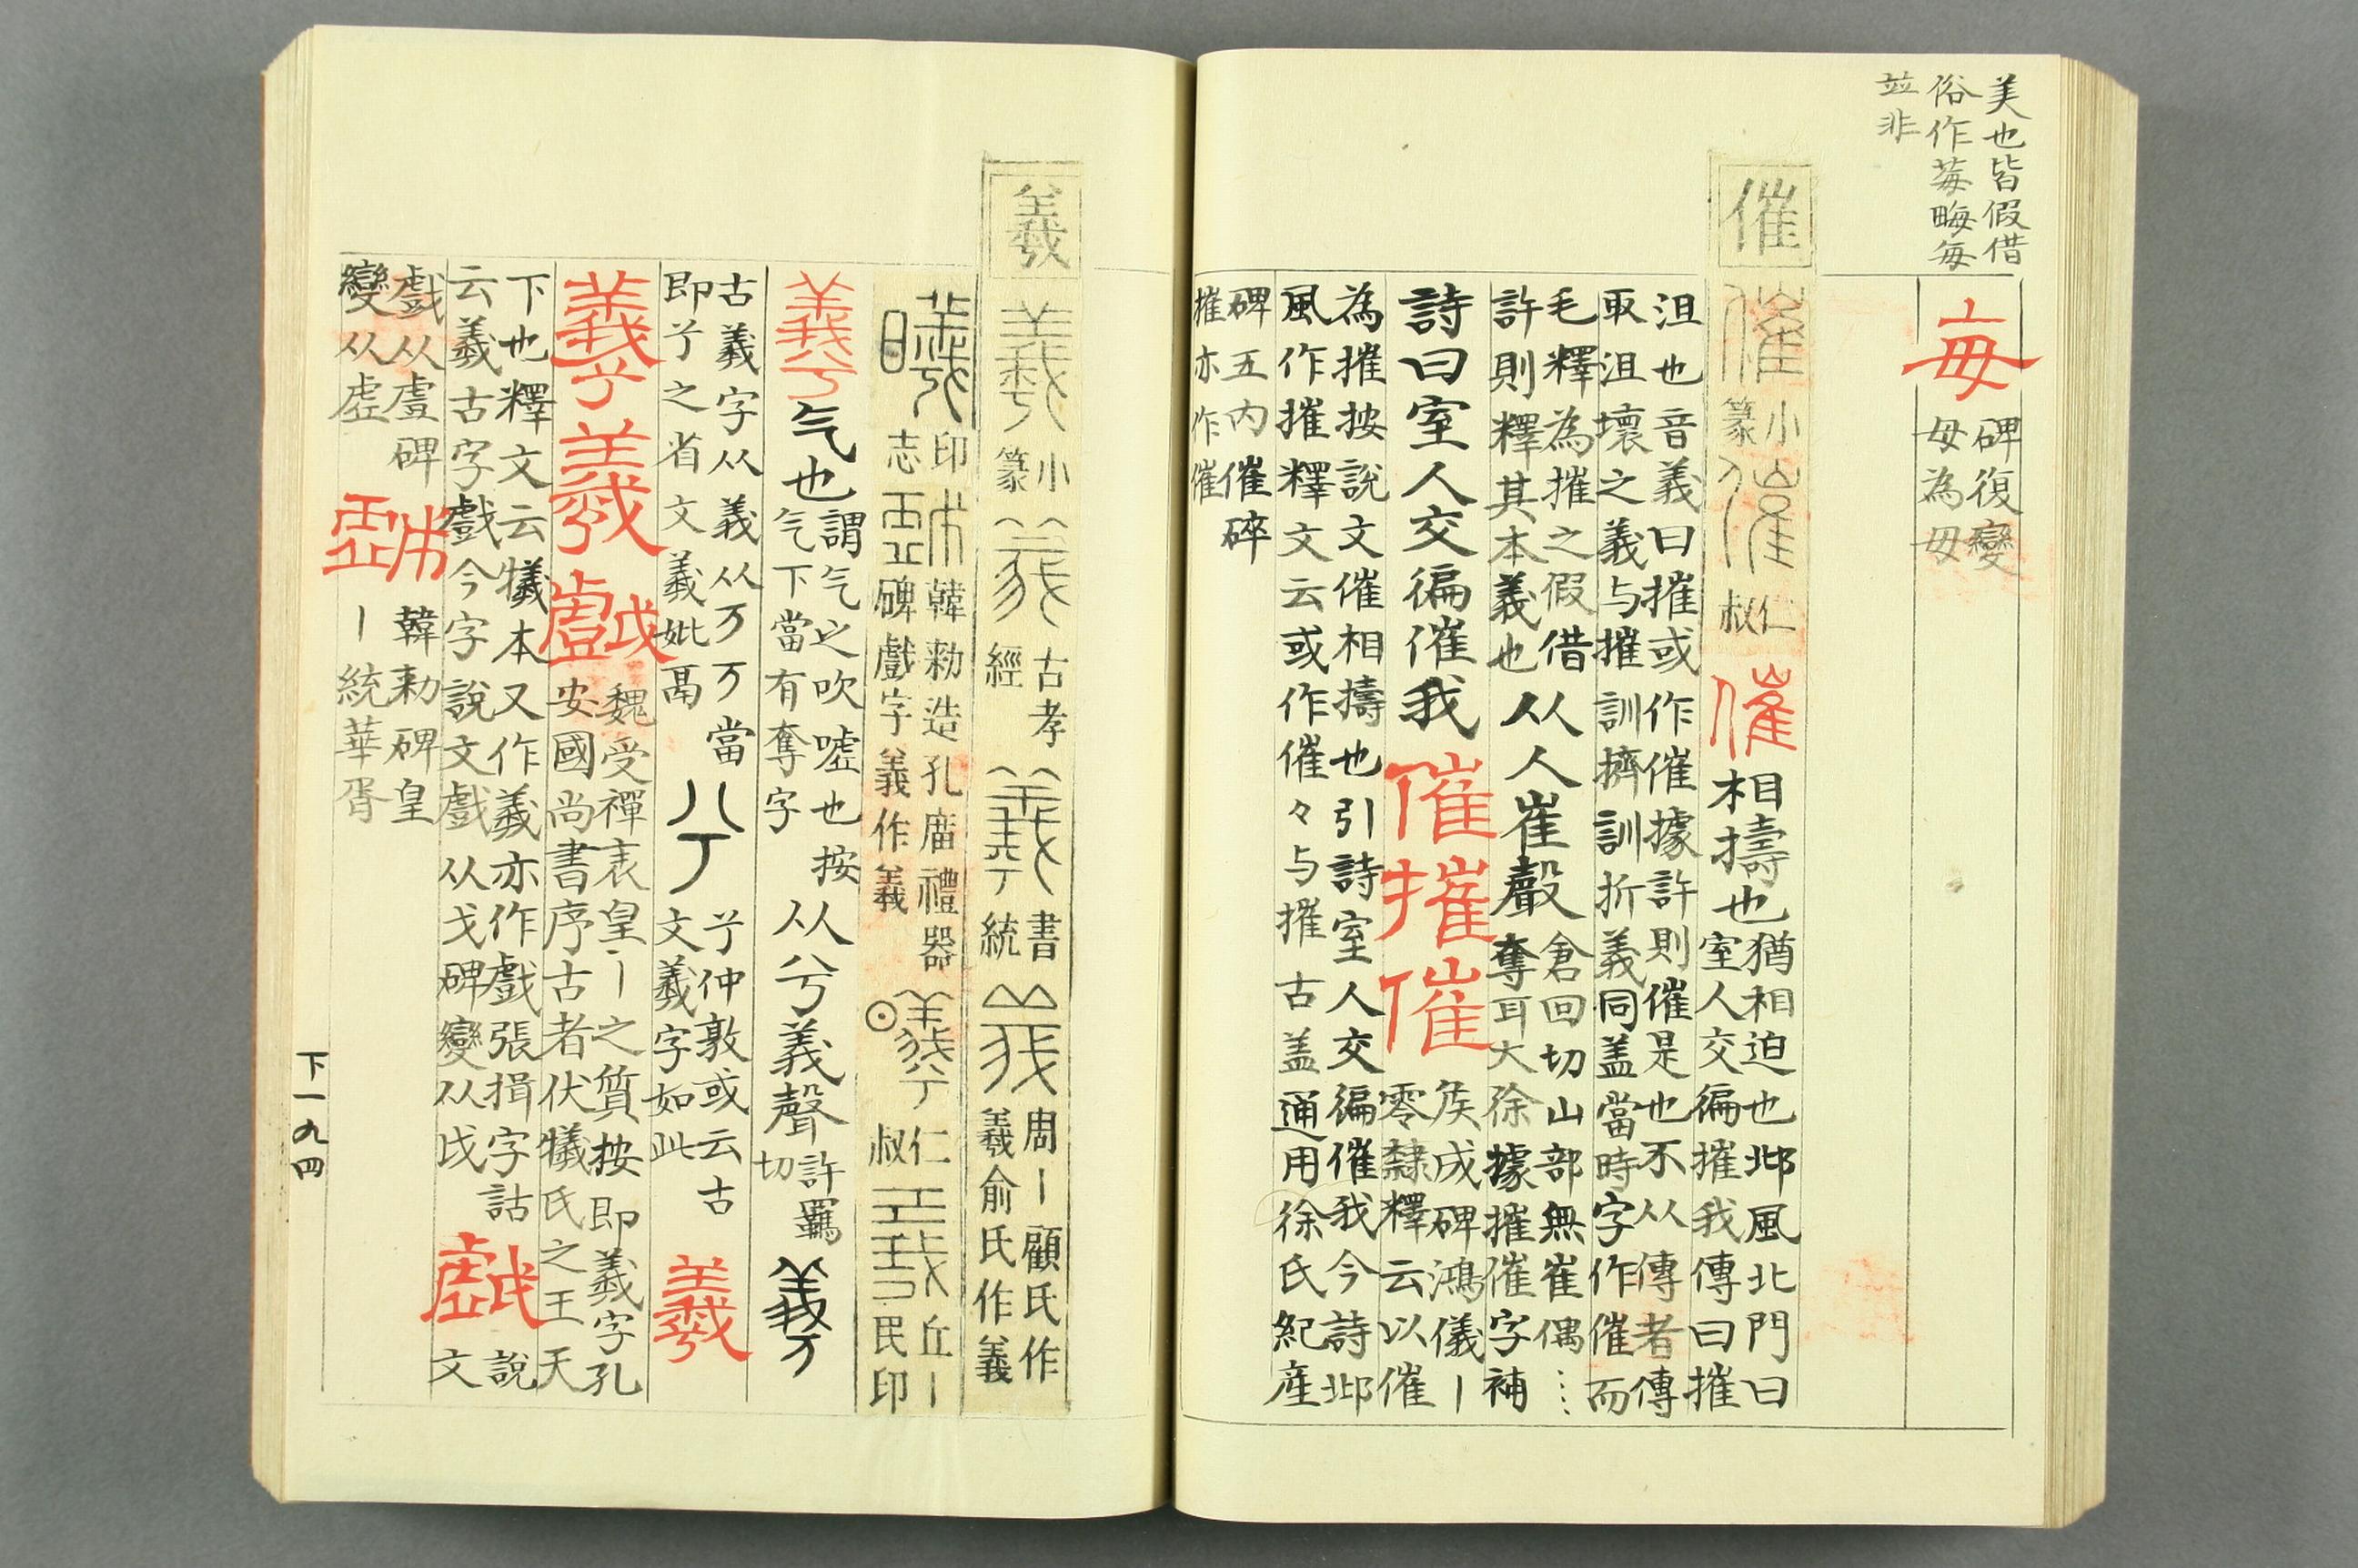 美也皆假借
俗作莓畮每
並非
每
碑復變
母為毋
催
小
篆
仁
叔
催相擣也
猶相迫也邶風北門曰
室人交徧摧我傳曰摧
沮也音義曰摧或作催據許則催是也不从傳者傳
取沮壞之義与摧訓擠訓折義同盖當時字作催而
毛釋為摧之假借
許則釋其本義也
从人崔聲
倉回切山部無崔偶…
奪耳大徐據摧催字補
詩曰室人交徧催我
催摧催
矦成碑鴻儀丨
零隸釋云以催
為摧按說文催相擣也引詩室人交徧催我今詩邶
風作摧釋文云或作催々与摧古盖通用徐氏紀產
碑五內催碎
摧亦作催
羲
小
篆
古孝
經
書
統
周丨顧氏作
羲俞氏作義
印
志
韓勑造孔廟禮器
碑戲字義作義
仁
叔
丘丨
民印
气也
謂气之吹嘘也按
气下當有奪字
从兮義聲
許羈
切
古羲字从義从丂丂當
即兮之省文義妣鬲
兮仲敦或云古
文羲字如此
羲
羲羲戲
魏受禪表皇丨之質按即羲字孔
安國尚書序古者伏犧氏之王天
下也釋文云犧本又作羲亦作戲張揖字詁
云羲古字戲今字說文戲从戈碑變从戉
戲
說
文
戲从䖒碑
變从虛
韓勑碑皇
丨統華胥
下一九四